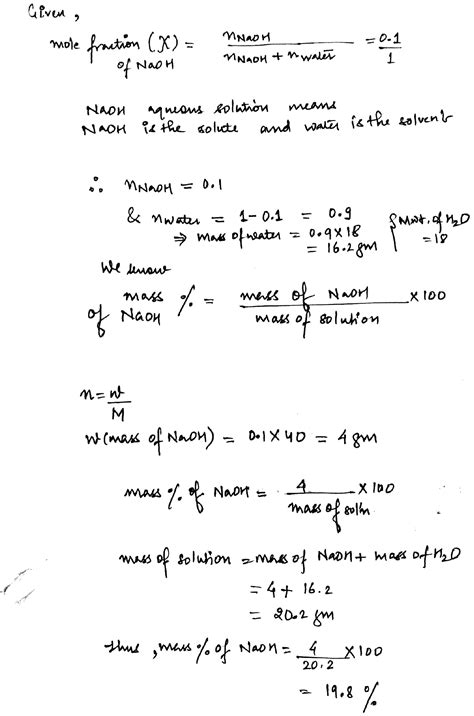 Given,
mole fraction (X) = nNaOH / nNaOH + nwater = 0.1 / 1
of NaOH
NaOH aqueous solution means
NaOH is the solute and water is the solvent
∴ nNaOH = 0.1
& nwater = 1-0.1 = 0.9
⇒ mass of water = 0.9 X 18 { M.wt. of H2O = 18
= 16.2 gm
We know
mass % of NaOH = mass of NaOH / mass of solution X 100
n = w / M
w (mass of NaOH) = 0.1 X 40 = 4 gm
mass % of NaOH = 4 / mass of soln X 100
mass of solution = mass of NaOH + mass of H2O
= 4 + 16.2
= 20.2 gm
Thus, mass % of NaOH = 4 / 20.2 X 100
= 19.8 %